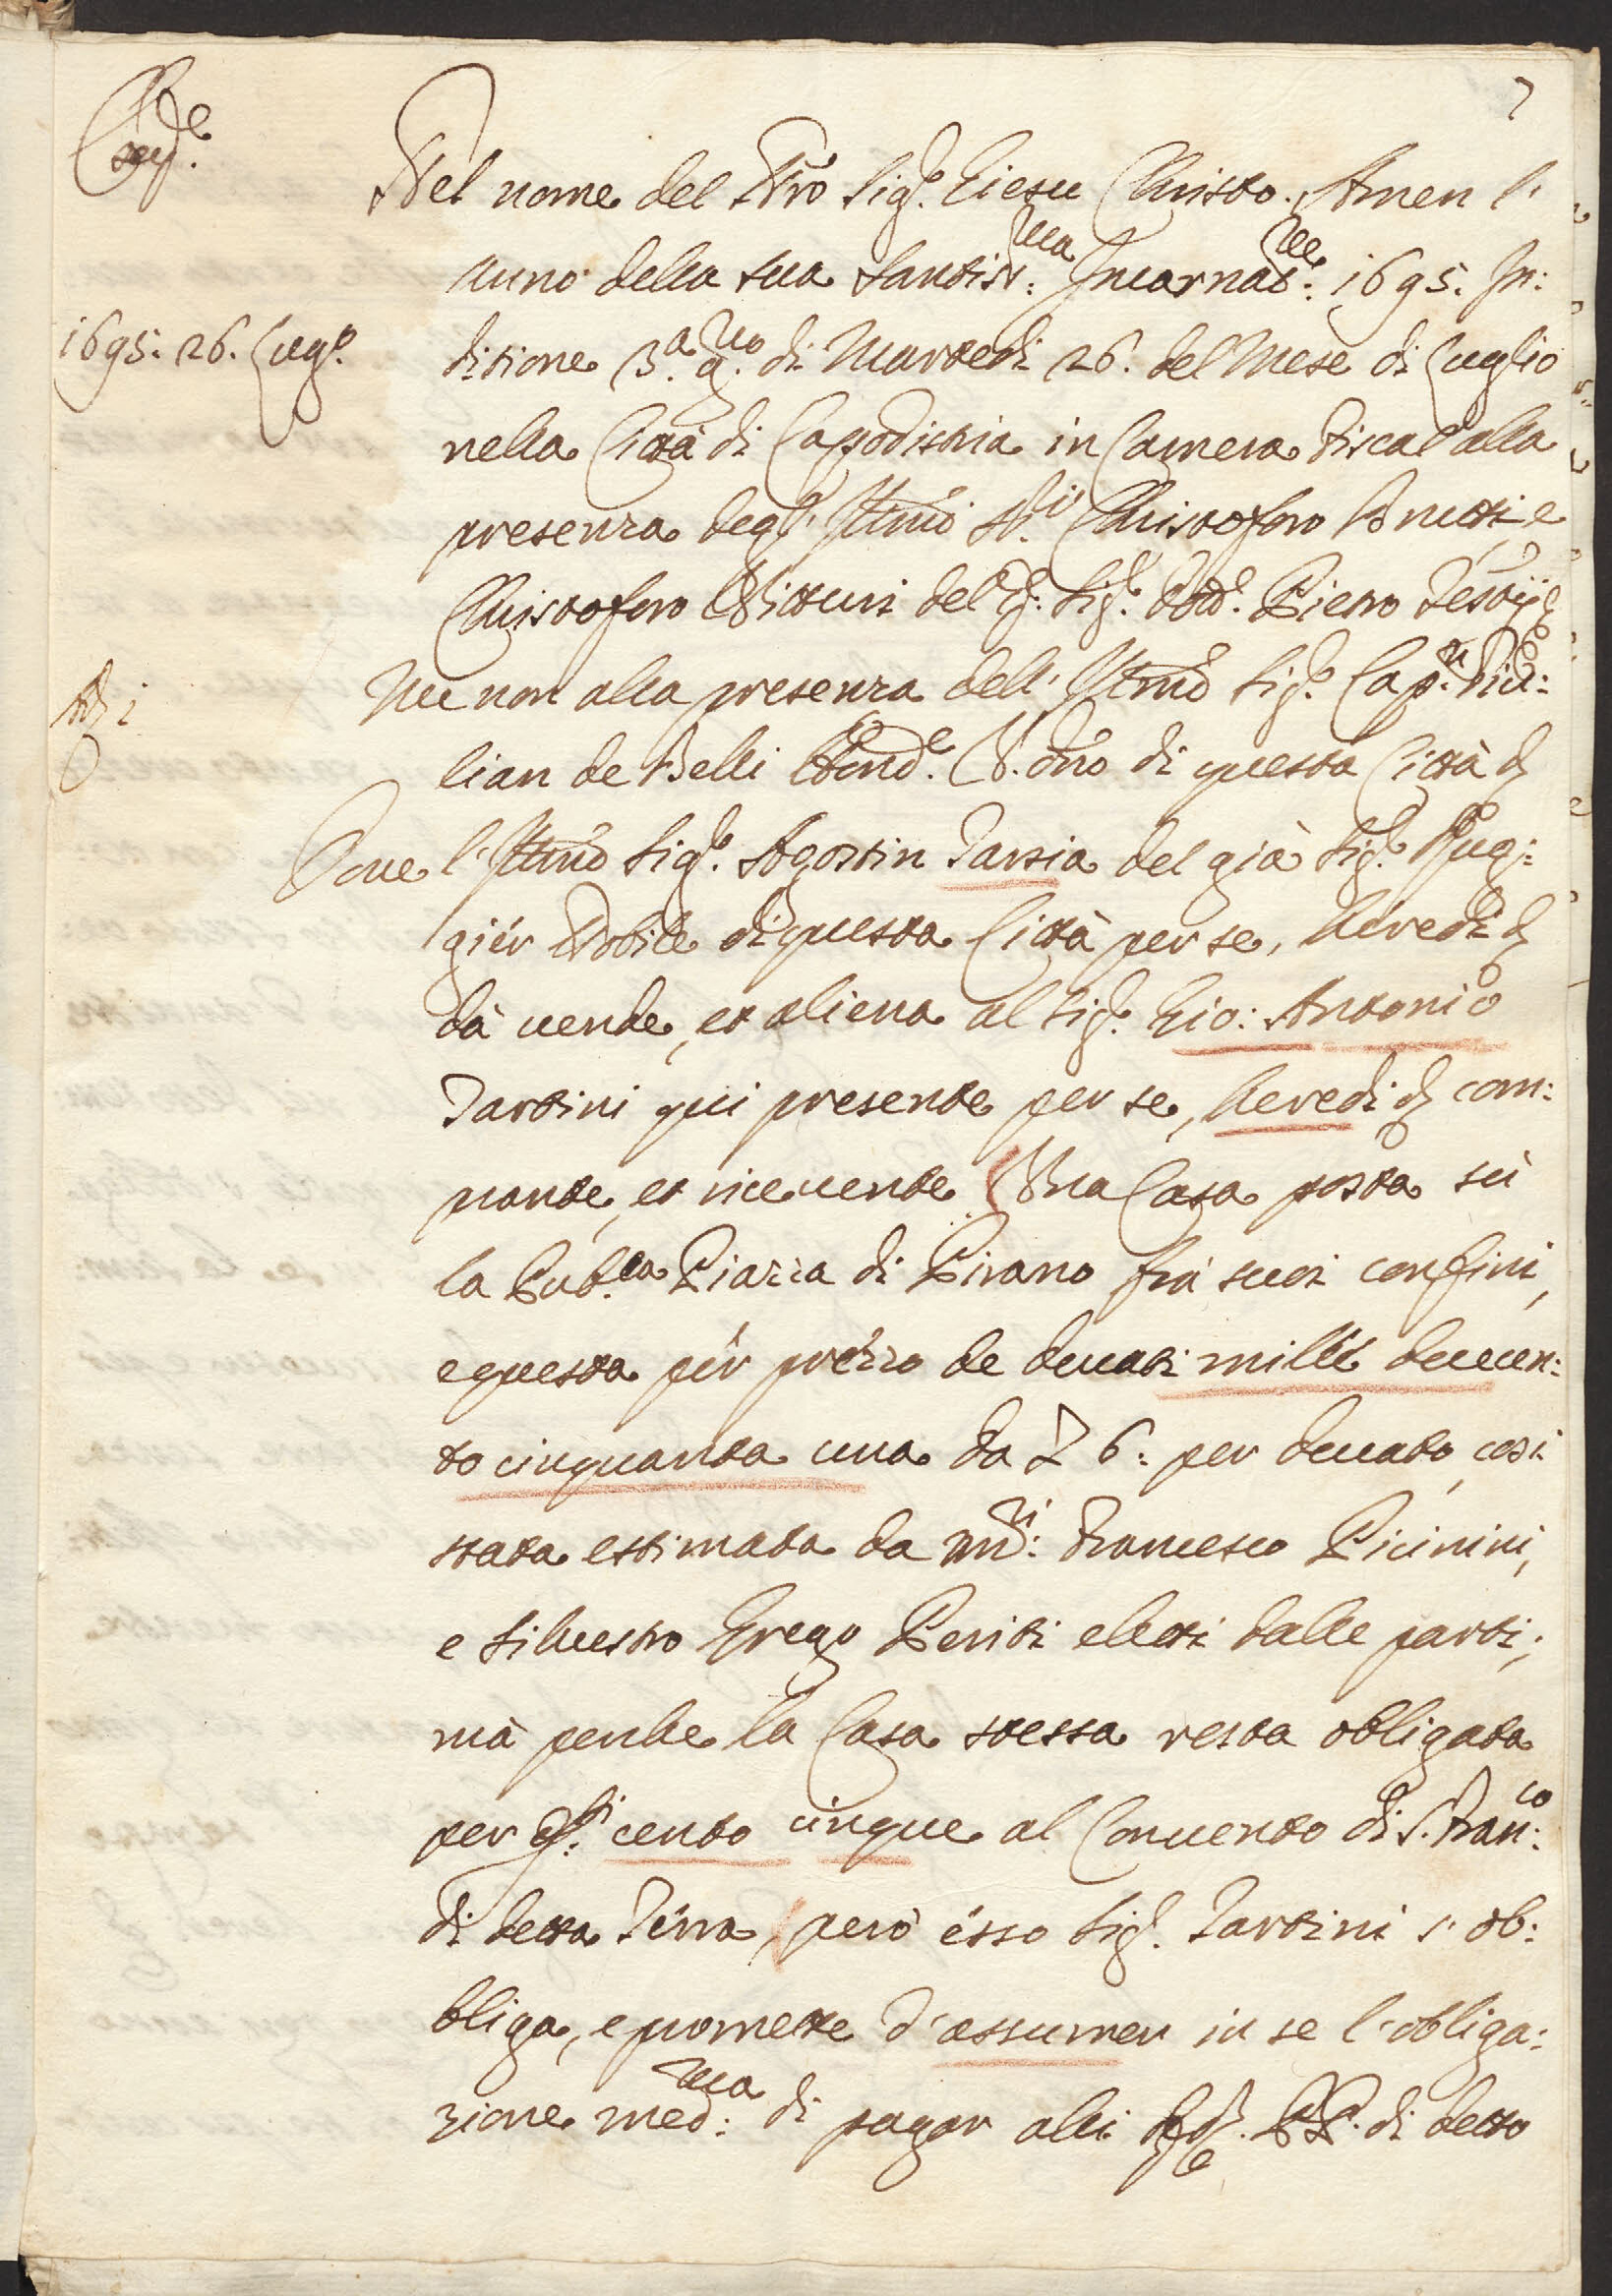 7
Nel nome del Nro Sig.e Giesu Christo. Amen l'
Anno della sua Santiss:ma Incarnat:ne 1695. In:
1695: 26. Lugl.o
ditione 3.a g.no di Martedi 26. del Mese di Luglio
nella Città di Capodistria in Camera Fiscal alla
presenza degl' Illmi SS.ri Christoforo Brutti, e
Christoforo Vitturi del q. Sig.r Dott.r Pietro Testijs
Ne non alla presenza dell' Illmo Sig.r Cap.n Giu:
lian de Belli Hond.e V. dno di questa Città
Doue l' Illmo Sig.r Agostin Tarsia del già Sig.r Rug:
giér Nobile di questa Città per se, heredi
dà uende, et aliena al Sig.r Gio: Antonio
Tartini qui presente per se, heredi com:
prante, et riceuente Vna Casa posta sù
la Pub.ca Piazza di Pirano frà suoi confini,
e questa pér prézzo de ducati mille duecen:
to cinquanta una da L 6: per ducato, cosi
stata estimata da m.ri: Francesco Picinini,
e Siluestro Grego Periti eletti dalle parti;
mà perche la Casa stessa resta obligata
per d.ti cento cinque al Conuento di S. Fran:co
di detta Térra, però ésso Sig.r Tartini s' ob:
bliga, e promette d'assumer in se l'obliga:
zione med:ma di pagar alli RR. PP. di detto